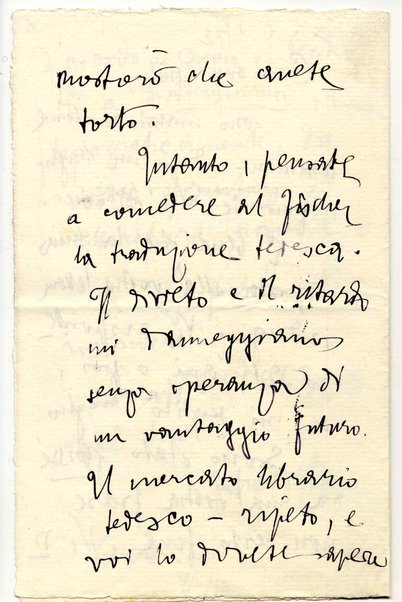 mostrerò che avete
torto.
Intanto, pensate
a concedere al Fischer
la traduzione tedesca.
Il divieto e il ritardo
mi danneggiano
senza speranza di
un vantaggio futuro.
Il mercato librario
tedesco – ripeto, e
voi lo dovete sapere